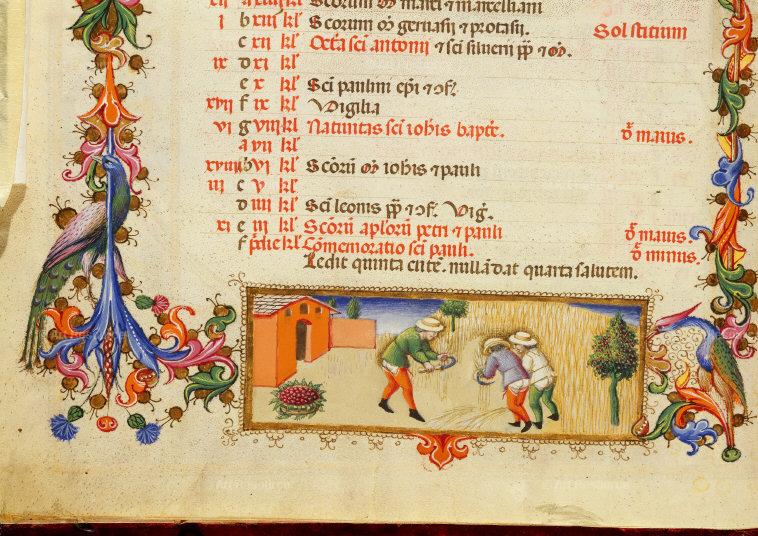 xii a xiiii kl' Scorum m̄ marci & marcelliani
i b xiii kl' Scorum m̄ geruasii & protasii. Solsticium
c xii kl' Octa sci antonii & sci siluerii pp̄ & m̄.
ix d xi kl'
e x kl' Sci paulini ep̄i & ɔf.
xvii f ix kl' Vigilia
vi g viii kl' Natiuitas sci ioh̄is bapte. d̄ maius.
a vii kl'
b vi kl' Scorū m̄ ioh̄is & pauli
iii c v kl'
d iiii kl' Sci leonis pp̄ & ɔf. Viḡ.
xi e iii kl' Scorū aplorū petri & pauli d̄ maius.
f pdie kl' Cōmemoratio sci pauli. d̄ minus.
Ledit quinta cute. nullā dat quarta salutem.